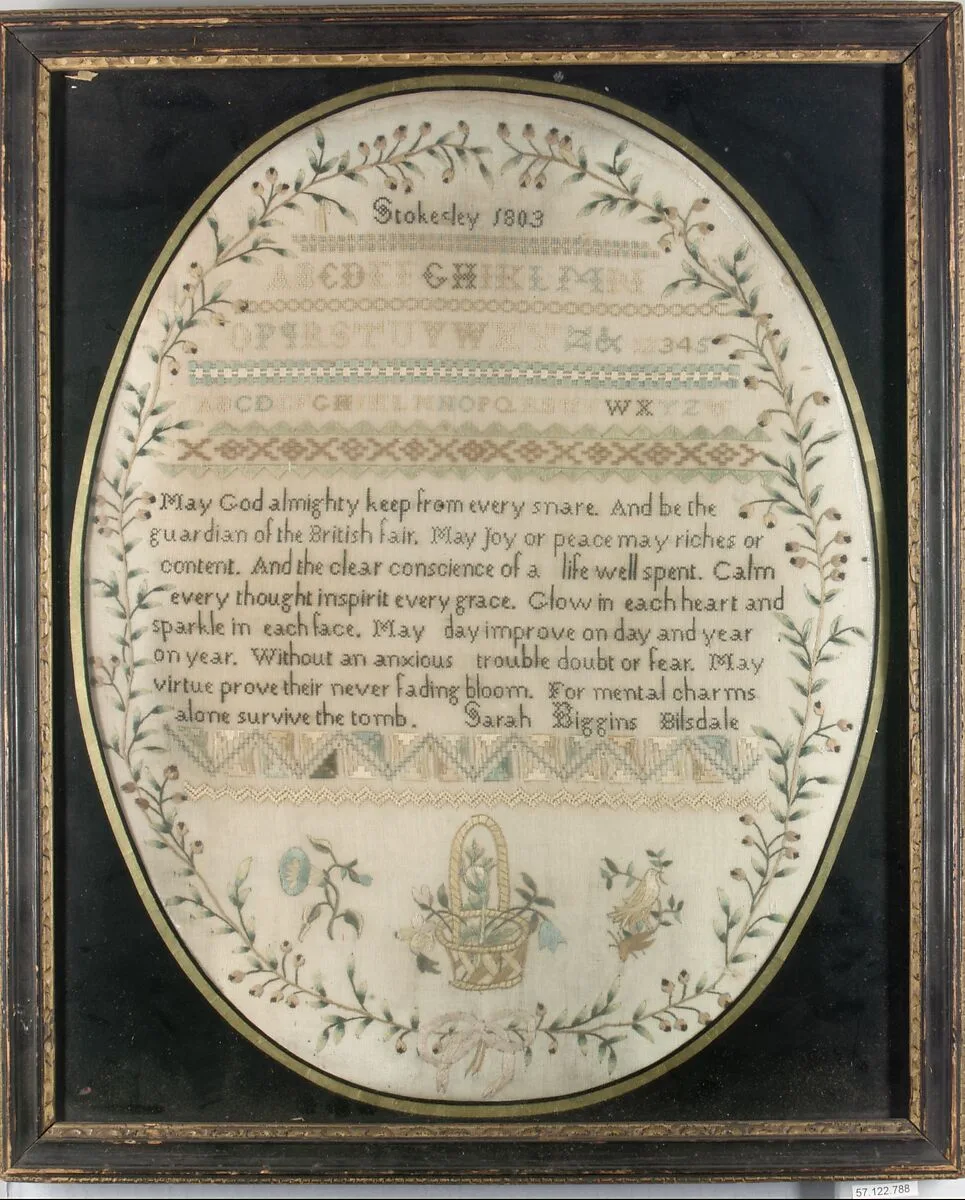 Stokesley 1803
ABCDEFGHIKLMN
OPQRSTUVWXYZ& 12345
ABCDEFGHIKLMNOPQRSTUVWXYZ
May God almighty keep from every snare. And be the
guardian of the British fair. May Joy or peace may riches or
content. And the clear conscience of a life well spent. Calm
every thought inspirit every grace. Glow in each heart and
sparkle in each face. May day improve on day and year
on year. Without an anxious trouble doubt or fear. May
virtue prove their never fading bloom. For mental charms
alone survive the tomb. Sarah Biggins Bilsdale
57.122.788